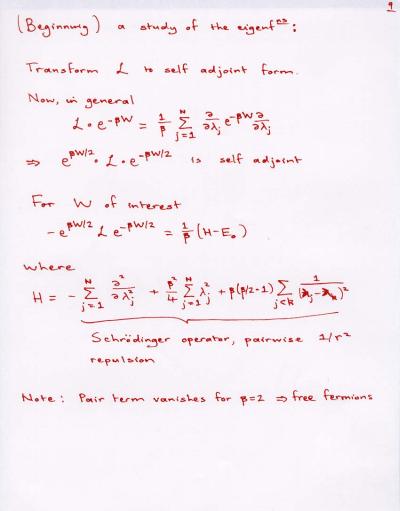 9
(Beginning) a study of the eigenfⁿˢ:
Transform L to self adjoint form.
Now, in general
L ∘ e^{-βW} = 1/β ∑_{j=1}^{N} ∂/∂λ_j e^{-βW} ∂/∂λ_j
⇒ e^{βW/2} ∘ L ∘ e^{-βW/2} is self adjoint
For W of interest
-e^{βW/2} L e^{-βW/2} = 1/β (H-E₀)
where
H = - ∑_{j=1}^{N} ∂²/∂λ_j² + β²/4 ∑_{j=1}^{N} λ_j² + β(β/2-1) ∑_{j<k} 1/(λ_j-λ_k)²
Schrödinger operator, pairwise 1/r²
repulsion
Note: Pair term vanishes for β=2 ⇒ free fermions